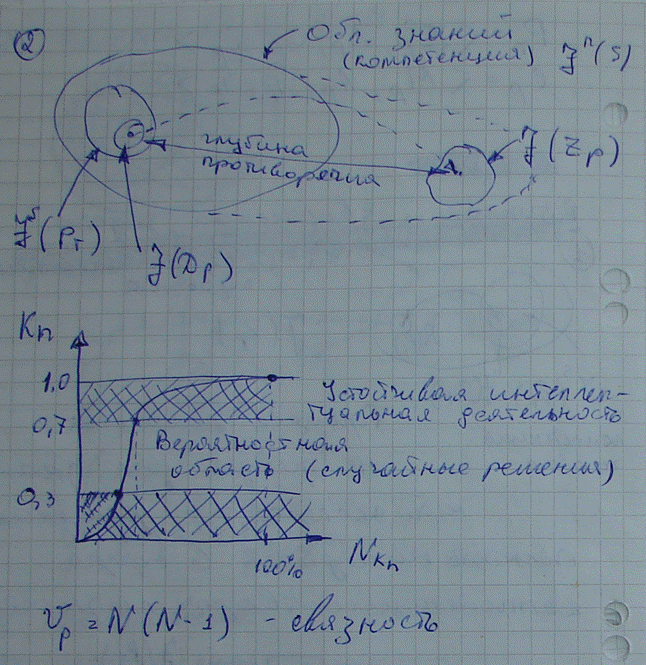 2
Обл. знаний
(компетенция) J^п(S)
глубина
противоречия
J(Z_p)
J^б(P_т)
J(D_p)
K_п
1,0
Устойчивая интеллек-
туальная деятельность
0,7
Вероятностная
область (случайные решения)
0,3
100% N_Kп
V_p = N(N-1) - связность